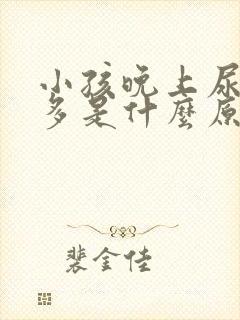 小孩晚上尿
多是什麼原
裴金佳